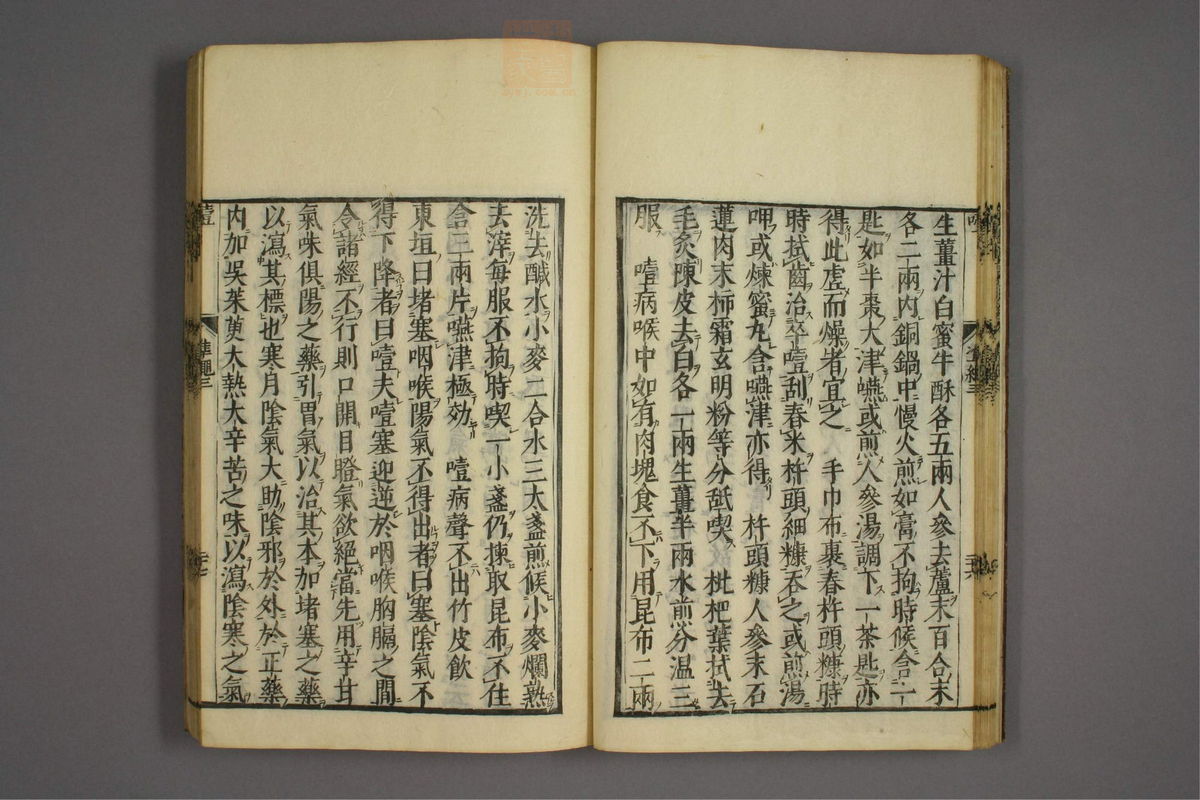 生薑汁白蜜牛酥各五兩人參去蘆末百合末
各二兩内銅鍋中慢火煎如膏不拘時候含一
匙如半棗大津嚥或煎人參湯調下一茶匙亦
得此虚而燥者宜之　手巾布裹舂杵頭糠時
時拭齒治卒噎刮舂米杵頭細糠吞之或煎湯
呷或煉蜜丸含嚥津亦得　杵頭糠人參末石
蓮肉末柿霜玄明粉等分舐喫　枇杷葉拭去
毛炙陳皮去白各一兩生薑半兩水煎分温三
服　噎病喉中如有肉塊食不下用昆布二兩
洗去鹹水小麥二合水三大盞煎候小麥爛熟
去滓每服不拘時喫一小盞仍揀取昆布不住
含三兩片嚥津極効　噎病聲不出竹皮飲
東垣曰堵塞咽喉陽氣不得出者曰塞陰氣不
得下降者曰噎夫噎塞迎逆於咽喉胸膈之間
令諸經不行則口開目瞪氣欲絕當先用辛甘
氣味俱陽之藥引胃氣以治其本加堵塞之藥
以瀉其標也寒月陰氣大助陰邪於外於正藥
内加吳茱萸大熱大辛苦之味以瀉陰寒之氣
噎
準繩三